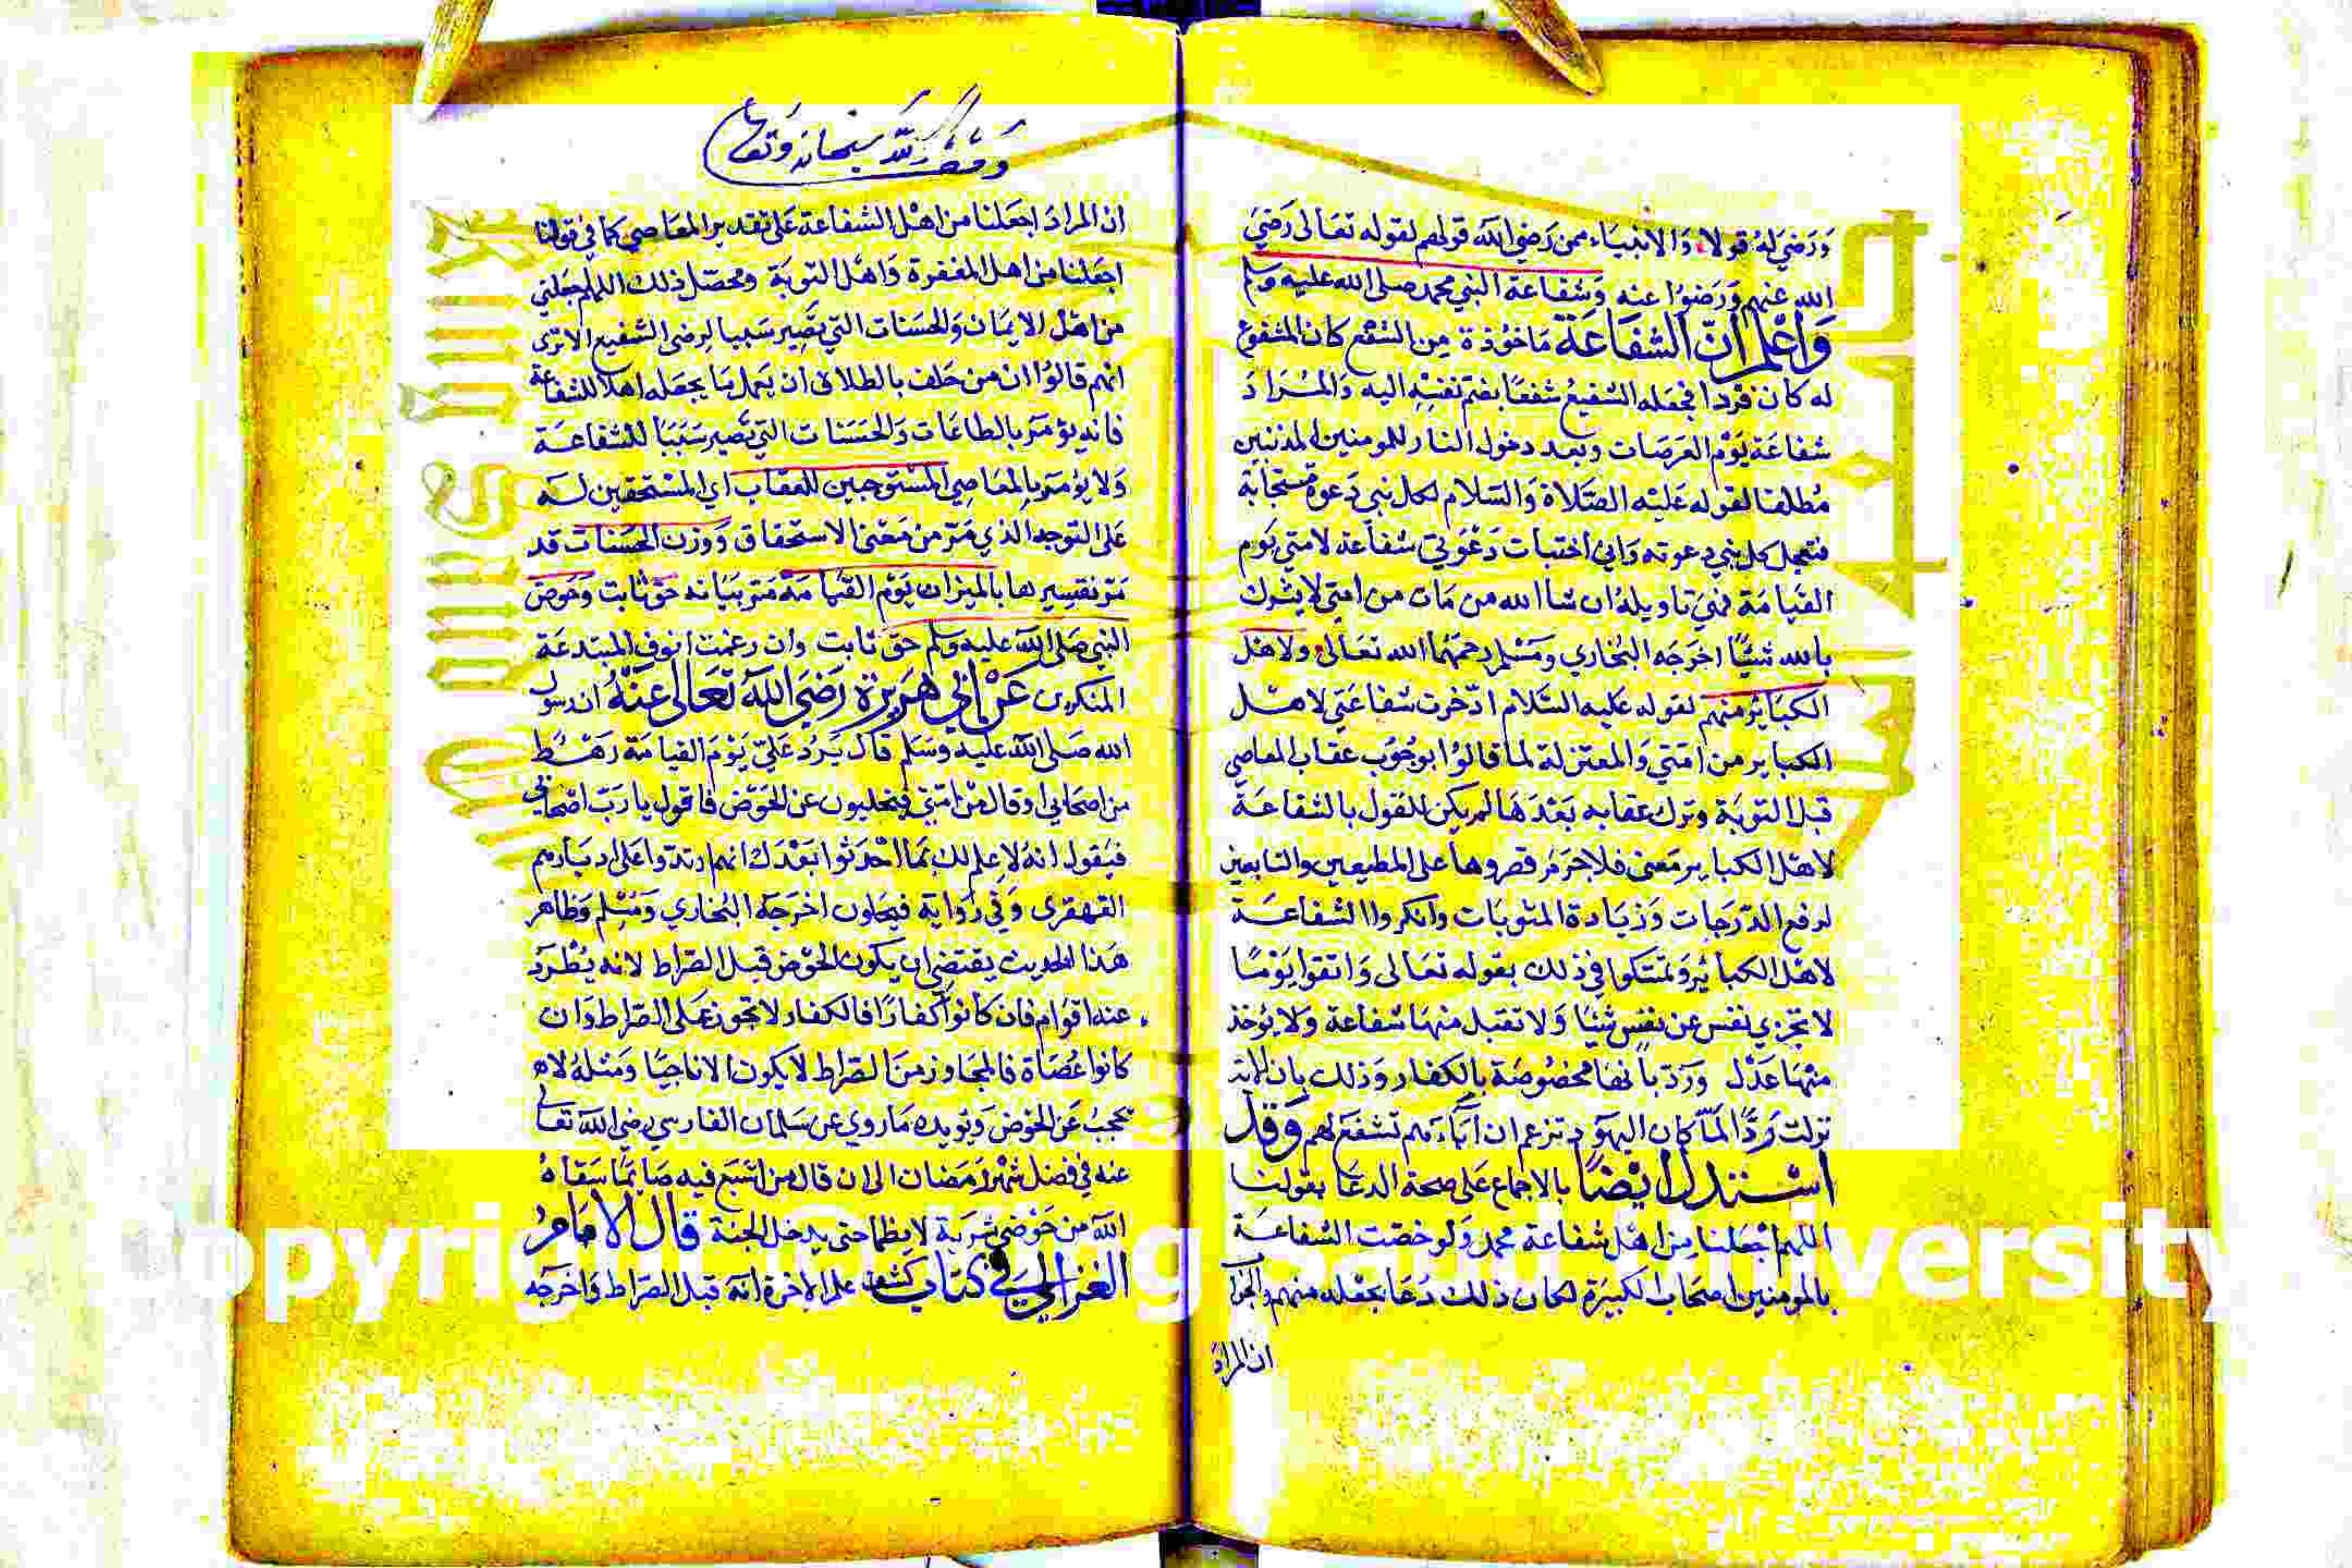 ورضي له قولا والانبياء ممن رضي الله قولهم لقوله تعالى رضي
الله عنهم ورضوا عنه وشفاعة النبي محمد صلى الله عليه وسلم
واعلم ان الشفاعة ماخوذة من الشفع كان المشفوع
له كان فردا فجعله الشفيع شفعا بضم نفسه اليه والمراد
شفاعة يوم العرصات وبعد دخول النار للمومنين المذنبين
مطلقا لقوله عليه الصلاة والسلام لكل نبي دعوة مستجابة
فتعجل كل نبي دعوته واني اختبات دعوتي شفاعة لامتي يوم
القيامة فهي تاويله ان شا الله من مات من امتي لا يشرك
بالله شيئا اخرجه البخاري ومسلم رحمهما الله تعالى ولاهل
الكبائر منهم لقوله عليه السلام ادخرت شفاعتي لاهل
الكباير من امتي والمعتزلة لما قالوا بوجوب عقاب المعاصي
قبل التوبة وترك عقابه بعدها لم يكن للقول بالشفاعة
لاهل الكباير معنى فلا جرم قصروها على المطيعين والتايبين
لرفع الدرجات وزيادة المثوبات وانكروا الشفاعة
لاهل الكبائر وتمتكوا في ذلك بقوله تعالى واتقوا يوما
لا تجزي نفس عن نفس شيئا ولا تقبل منها شفاعة ولا يوخذ
منها عدل ورد بانها مخصوصة بالكفار وذلك بان الاية
نزلت ردا لما كان اليهود تزعم ان آباءهم تشفع لهم وقد
استدل ايضا بالاجماع على صحة الدعا بقولنا
اللهم اجعلنا من اهل شفاعة محمد ولو خصت الشفاعة
بالمومنين اصحاب الكبيرة لكان ذلك دعا بجعله منهم والجواب
ان المراد
ومضا لله سبحانه وتعالى
ان المراد اجعلنا من اهل الشفاعة على تقدير المعاصي كما في قولنا
اجعلنا من اهل المغفرة واهل التوبة ومحصل ذلك اللهم اجعلني
من اهل الايمان والحسنات التي تصير سببا لرضى الشفيع الا ترى
انهم قالوا ان من حلف بالطلاق ان يعمل بما يجعله اهلا للشفاعة
فانه يؤمر بالطاعات والحسنات التي تصير سببا للشفاعة
ولا يؤمر بالمعاصي المستوجبين للعقاب اي المستحقين له
على التوجه الذي مر من معنى الاستحقاق ووزن الحسنات قد
مر تفسيرها بالميزان يوم القيامة مر بيانه حق ثابت وحوض
النبي صلى الله عليه وسلم حق ثابت وان رغمت انوف المبتدعة
المنكرين عن ابي هريرة رضي الله تعالى عنه ان رسول
الله صلى الله عليه وسلم قال يرد علي يوم القيامة رهط
من اصحابي او قال من امتي فيحلبون عن الحوض فاقول يا رب اصحابي
فيقول انه لا علم لك بما احدثوا بعدك انهم ارتدوا على ادبارهم
القهقرى وفي رواية فيجلون اخرجه البخاري ومسلم وظاهر
هذا الحديث يقتضي ان يكون الحوض قبل الصراط لانه يطرد
عنه اقوام فان كانوا كفارا فالكفار لا تجوز على الصراط وان
كانوا عصاة فالمجاوز من الصراط لا يكون الا ناجيا ومثله لا
يحجب عن الحوض ويؤيده ما روي عن سلمان الفارسي رضي الله تعالى
عنه في فضل شهر رمضان الى ان قال من اشبع فيه صايما سقاه
الله من حوضي شربة لا يظما حتى يدخل الجنة قال الامام
الغزالي في كتاب كشف علم الاخرة انه قبل الصراط واخرجه